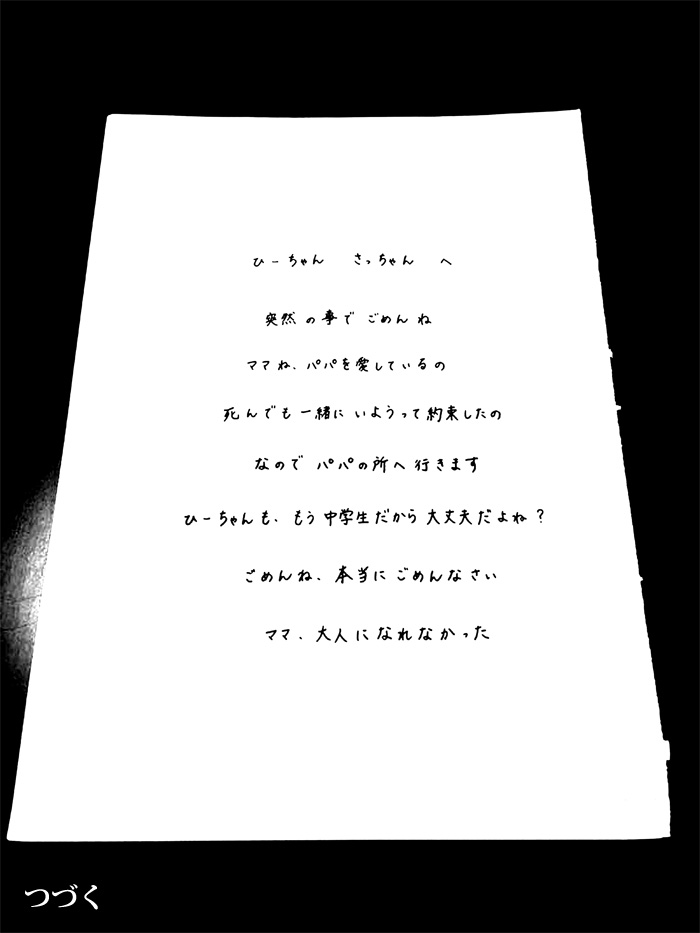 ひーちゃん さっちゃん へ
突然の事でごめんね
ママね、パパを愛しているの
死んでも一緒にいようって約束したの
なのでパパの所へ行きます
ひーちゃんも、もう中学生だから大丈夫だよね？
ごめんね、本当にごめんなさい
ママ、大人になれなかった
つづく